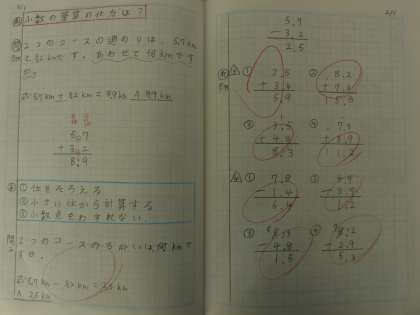 小数の筆算の仕方は?
2つのコースの道のりは、5.7km
と3.2kmです。あわせて何kmです
か。
式 5.7km + 3.2km = 8.9km A 8.9km
5.7
+ 3.2
8.9
①位をそろえる
②小さい位から計算する
③小数点をわすれない。
2つのコースのちがいは何kmで
すか。
式 5.7km - 3.2km = 2.5km
A 2.5km
5.7
- 3.2
2.5
①
2.5
+ 3.4
5.9
②
8.2
+ 7.1
15.3
③
3.5
+ 4.8
8.3
④
①
7.8
- 1.4
6.4
②
③
- 4.8
1.5
④
8.2
- 2.9
5.3